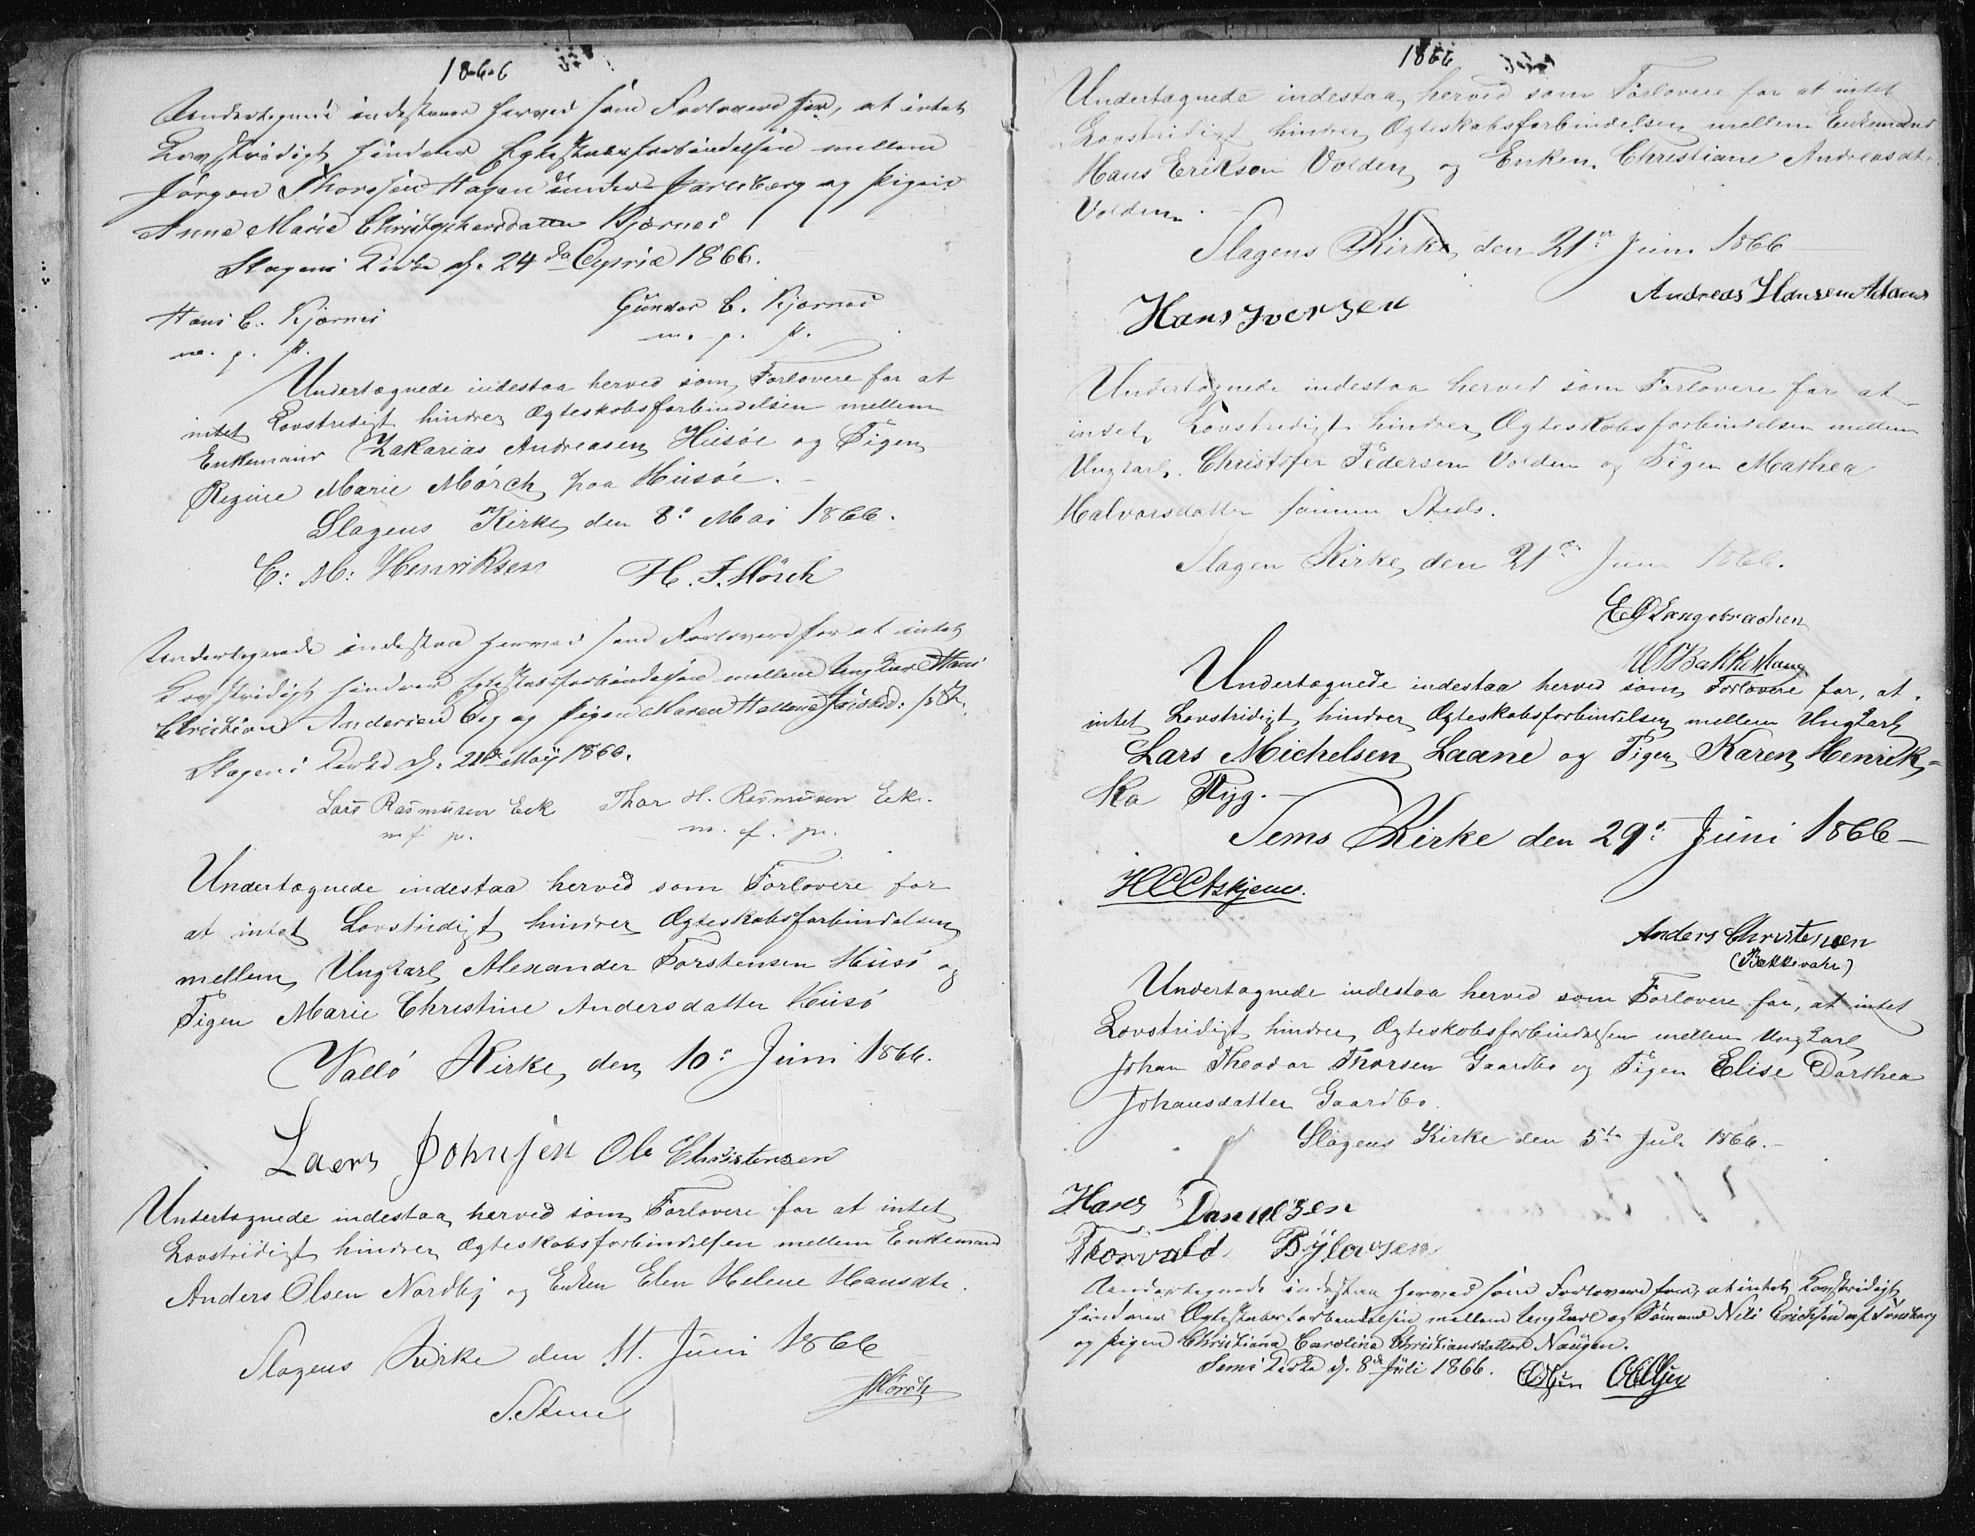 1866
Undertegnede indestaaer herved som Forlovere for, at intet
Lovstridigt hindrer Egteskabsforbindelsen mellem
Jörgen Thorssen Hagen under Jarlsberg og Pigen
Anne Marie Christophersdatter Kjærnes
Slagens Kirke d. 24de April 1866.
Hans C. Kjærnes Gunder C. Kjærnes
m. p. p. m. p. p.
Undertegnede indestaa herved som Forlovere for at
intet Lovstridigt hindrer Ægteskabsforbindelsen mellem
Enkemand Zakarias Andreasen Húsöe og Pigen
Regine Marie Mörch paa Húsöe.
Slagens Kirke den 8de Mai 1866.
C: M: Henriksen H. F. Mörch
Undertegnede indestaa herved som Forlovere for at intet
Lovstridigt hindrer Egteskabsforbindelsen mellem Ungkarl Hans
Christian Andersen Eeg og Pigen Karen Hellene
Slagens Kirke d. 21de May 1866.
Lars Rasmussen Eek Thor H. Rasmussen Eek.
m. f. p. m. f. p.
Undertegnede indestaa herved som Forlovere for
at intet Lovstridigt hindrer Ægteskabsforbindelsen
mellem Ungkarl Alexander Torstensen Húsö og
Pigen Marie Christine Andersdatter Húsö
Vallö Kirke den 10de Juni 1866.
Laers Johnsen Ole Christensen
Undertegnede indestaa herved som Forlovere for at intet
Lovstridigt hindrer Ægteskabsforbindelsen mellem Enkemand
Anders Olsen Nordby og Enken Elen Helene Hansdtr.
Slagens Kirke den 11. Juni 1866
S. Steen Mörch
1866
Undertegnede indestaa herved som Forlovere for at intet
Lovstridigt hindrer Ægteskabsforbindelsen mellem Enkemand
Hans Eriksen Volden og Enken Christiane Andreasdt.
Volden.
Slagens Kirke den 21de Juni 1866
Andreas Hansen
Hans Iversen
Undertegnede indestaa herved som Forlovere for at
intet Lovstridigt hindrer Ægteskabsforbindelsen mellem
Ungkarl Christofer Pedersen Volden og Pigen Mathea
Halvorsdatter samme Steds.
Slagen Kirke den 21de Juni 1866.
E O Langebrachen
Undertegnede indestaa herved som Forlovere for, at
intet Lovstridigt hindrer Ægteskabsforbindelsen mellem Ungkarl
Lars Michelsen Laane og Pigen Karen Henrik-
ka Ryg.
Sems Kirke den 29de Juni 1866
Anders Christensen
(Bakkevahr)
Undertegnede indestaa herved som Forlovere for, at intet
Lovstridigt hindrer Ægteskabsforbindelsen mellem Ungkarl
Johan Theodor Thorsen Gaardbo og Pigen Elise Dorthea
Johansdatter Gaardbo.
Slagens Kirke den 5te Juli 1866.
Hans Danielsen
Thorvald Byløvsen
Undertegnede indestaa herved som Forlovere for, at intet Lovstridigt
hindrer Ægteskabsforbindelsen mellem Ungkarl og Sömand Nils Erichsen af Tönsberg
og Pigen Christiana Carolina Christiansdatter Naugen.
Sems Kirke d. 8de Juli 1866.